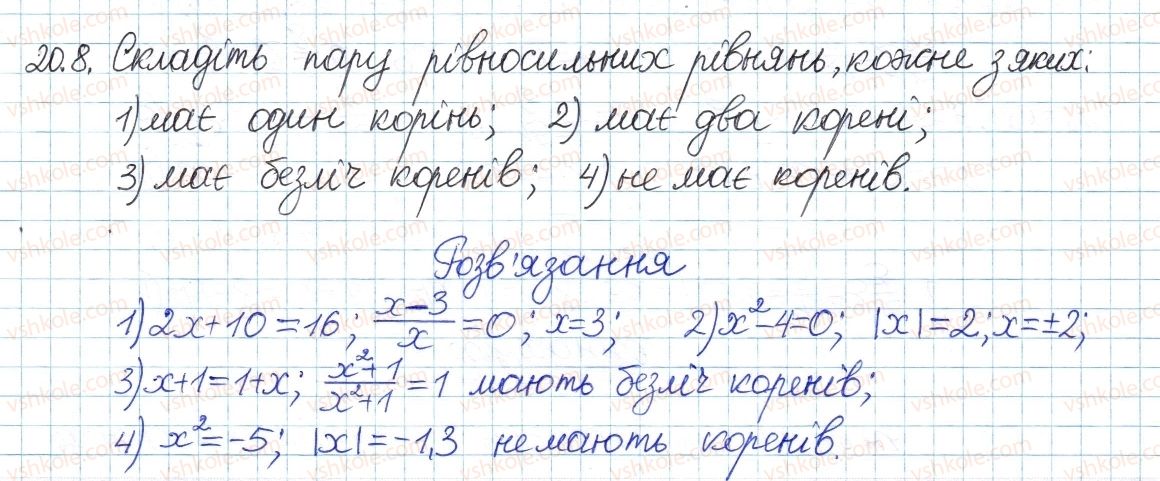 20.8. Складіть пару рівносильних рівнянь, кожне з яких:
1) має один корінь; 2) має два корені;
3) має безліч коренів; 4) не має коренів.
Розв'язання
1) 2x+10=16; (x-3)/x=0; x=3; 2) x²-4=0; |x|=2; x=±2;
3) x+1=1+x; (x²+1)/(x²+1)=1 мають безліч коренів;
4) x²=-5; |x|=-1,3 не мають коренів.